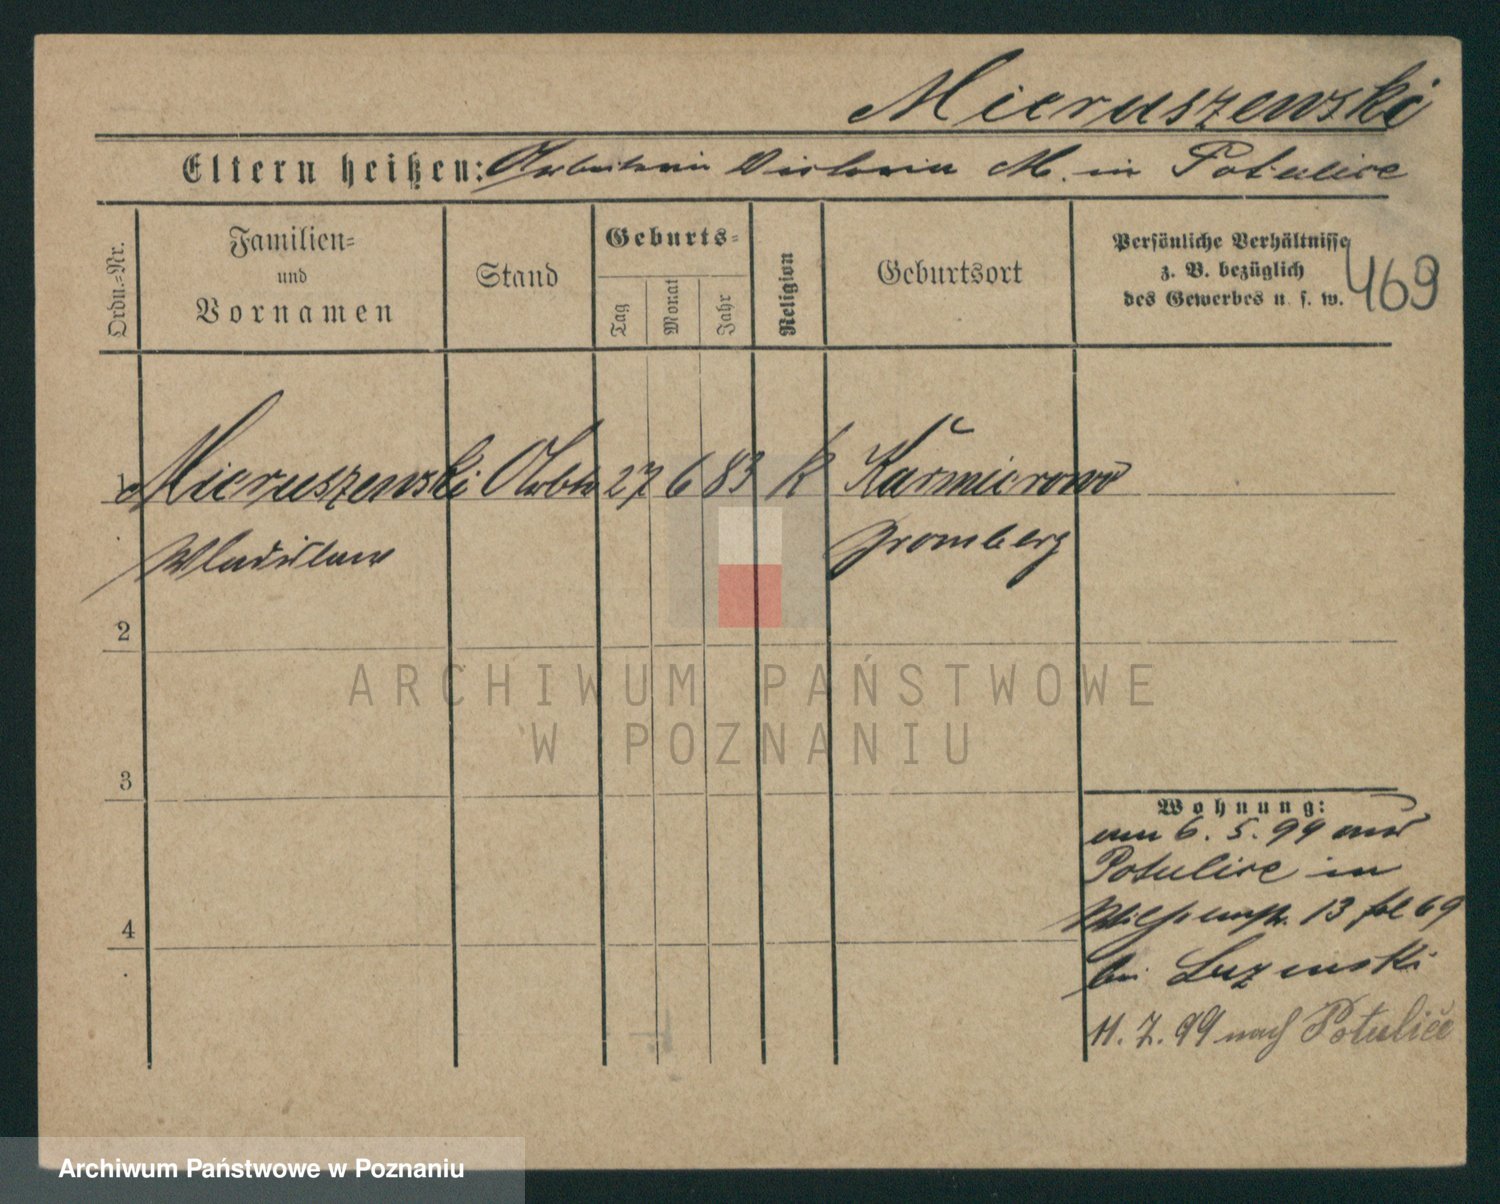 Mieruszewski
Eltern heißen: Arbeiterin Victoria M. in Potulice
Ordn.-Nr.
Familien-
und
Vornamen
Stand
Geburts-
Tag
Monat
Jahr
Religion
Geburtsort
Persönliche Verhältnisse
z. B. bezüglich
des Gewerbes u. s. w.
469
1 Mieruszewski Arbtr 27 6 83 K Kasmierowo
Wladislaw Bromberg
2
ARCHIWUM PAŃSTWOWE
W POZNANIU
3
Wohnung:
am 6. 5. 99 aus
Potulice in
13 fol 69
bei
11. 7. 99 nach Potulice
4
Archiwum Państwowe w Poznaniu